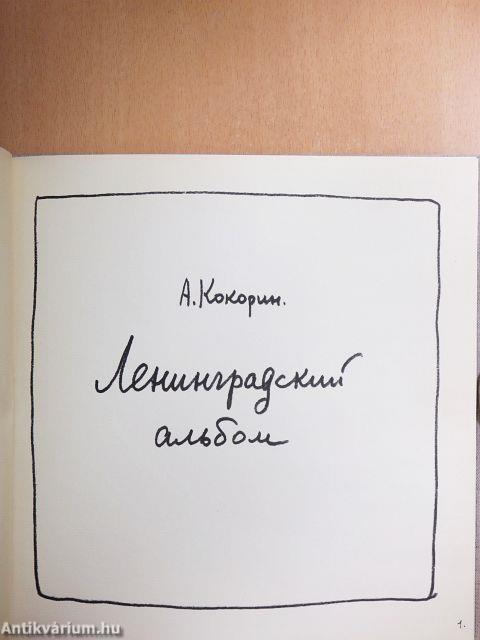 А. Кокорин.
Ленинградский
альбом
1.
Antikvárium.hu